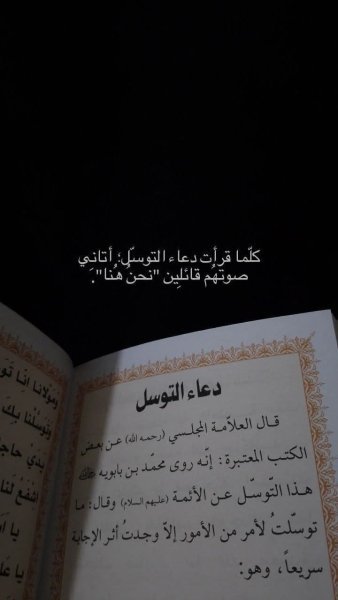 كلّما قرأت دعاء التوسّل؛ أتاني
صوتهُم قائلِين "نحنُ هُنا".
دعاء التوسل
قال العلاّمة المجلسي (رحمه الله) عن بعض
الكتب المعتبرة : إنّه روى محمّد بن بابويه
هذا التّوسّل عن الأئمة (عليهم السلام) وقال: ما
توسّلتُ لأمر من الأمور إلاّ وجدتُ أثر الإجابة
سريعاً، وهو:
وَمَوْلانا انّا
وَتَوَسَّلْنا بِكَ
يَدَيْ
اشْفَعْ لَنا
يا
يا